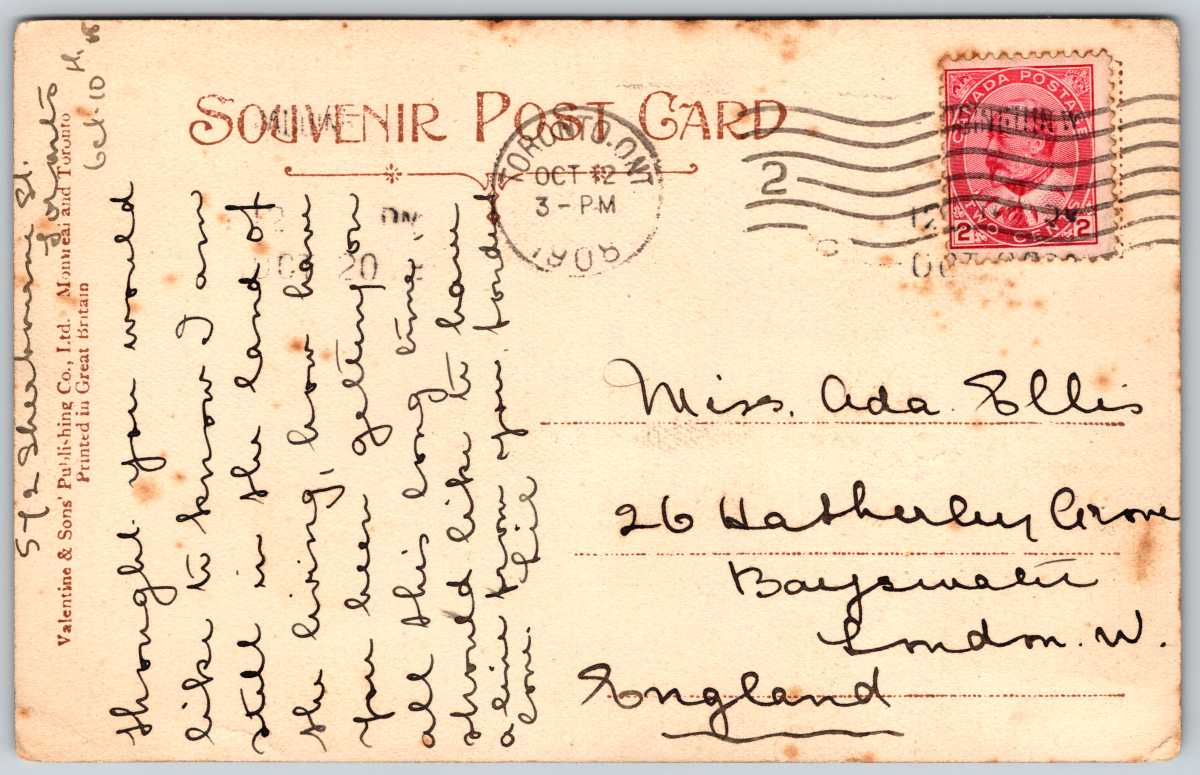 SOUVENIR POST CARD
TORONTO. ONT
OCT 12
3 - PM
2
CANADA POSTAGE
TWO CENTS
2 2
Miss. Ada. Ellis
26 Hatherley Grove
Bayswater
London. W.
England
572 Sherbourne St.
Toronto
Oct. 10th
thought you would
like to know I am
still in the land of
the living, how have
you been getting on
all this long time,
should like to have
a line from you. fondest
love. Lil
Valentine & Sons' Publishing Co., Ltd. Montreal and Toronto
Printed in Great Britain